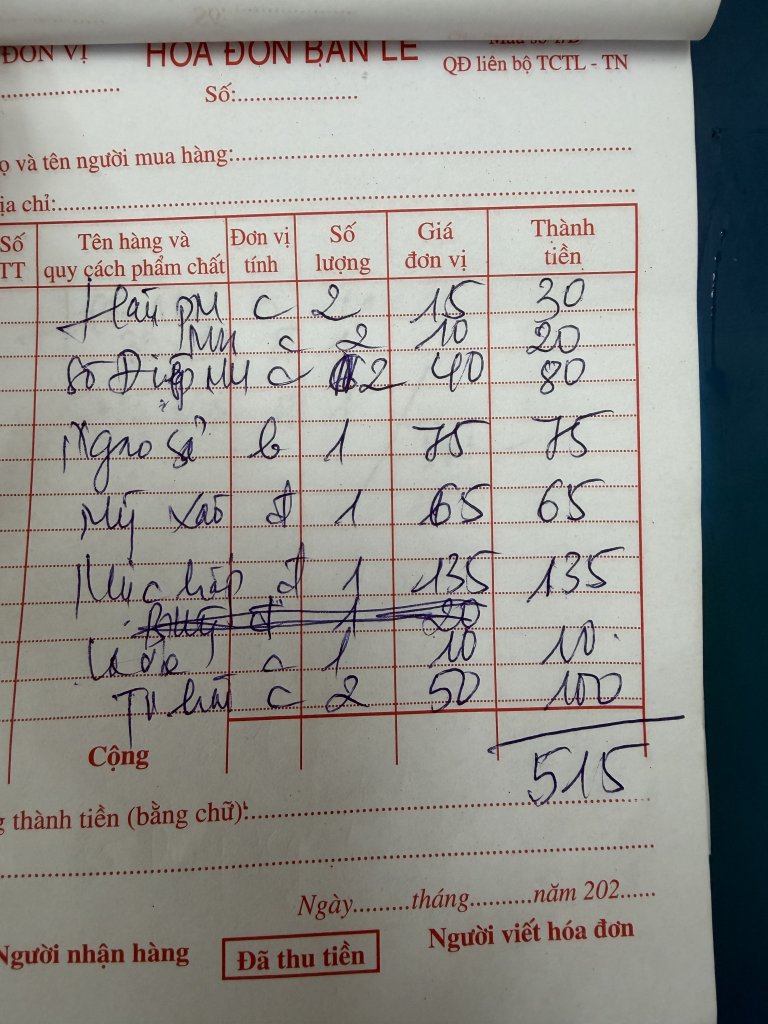 ĐƠN VỊ HÓA ĐƠN BÁN LẺ
QĐ liên bộ TCTL - TN
Số:
ọ và tên người mua hàng:
ịa chỉ:
Số TT Tên hàng và quy cách phẩm chất Đơn vị tính Số lượng Giá đơn vị Thành tiền
Hàu PM c 2 15 30
MH c 2 10 20
Sò Điệp MH c 2 40 80
Ngao sả b 1 75 75
Mỳ xào đ 1 65 65
Mực hấp đ 1 135 135
đ 1 20
c 1 10 10
c 2 50 100
Cộng 515
g thành tiền (bằng chữ):
Ngày.........tháng..........năm 202......
Người nhận hàng Đã thu tiền Người viết hóa đơn